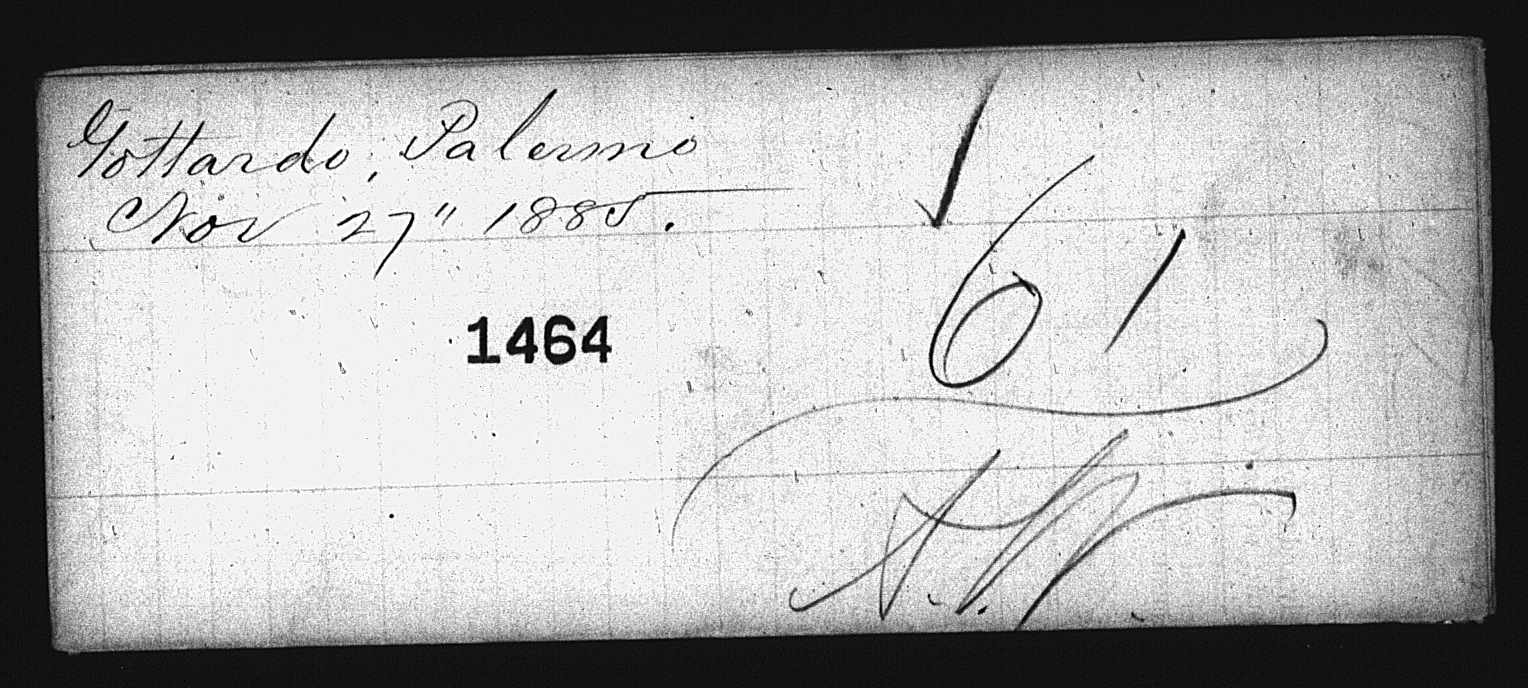 Gottardo, Palermo
Nov 27" 1885.
61
1464